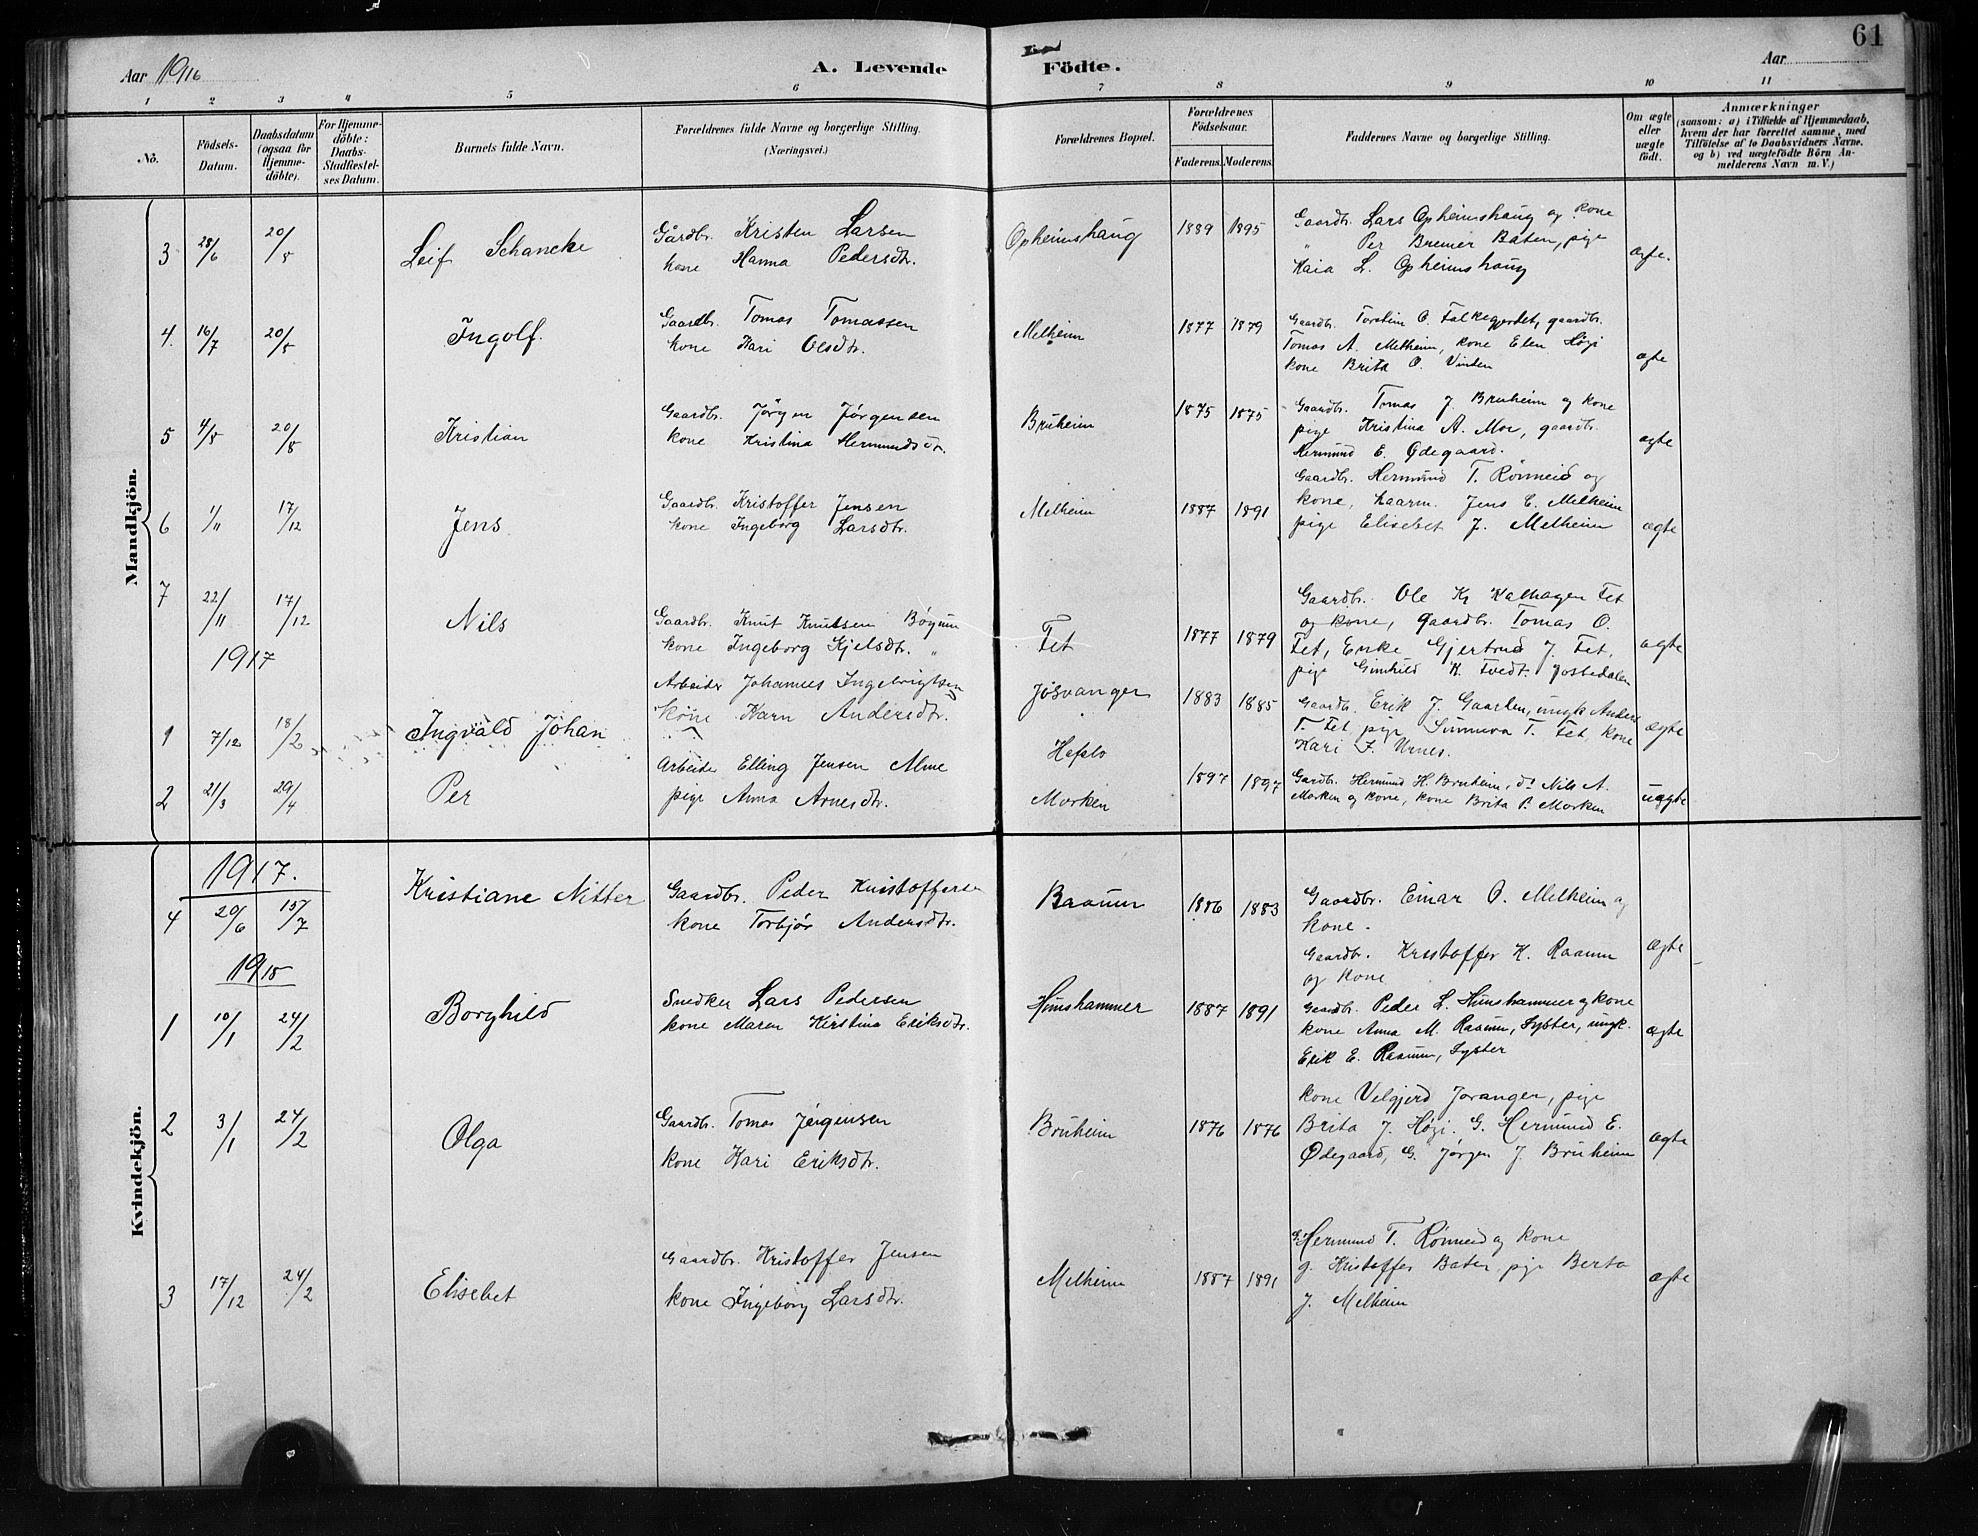 Aar 1916
A. Levende
Födte.
Aar
61
1 2 3 4 5 6 7 8 9 10 11
No.
Födsels-
Datum.
Daabsdatum
(ogsaa for
Hjemme-
döbte).
For Hjemme-
döbte:
Daabs-
Stadfæstel-
ses Datum.
Barnets fulde Navn.
Forældrenes fulde Navne og borgerlige Stilling.
(Næringsvei.)
Forældrenes Bopæl.
Forældrenes
Födselsaar.
Faderens. Moderens.
Faddernes Navne og borgerlige Stilling.
Om ægte
eller
uægte
födt.
Anmærkninger
(saasom: a) i Tilfælde af Hjemmedaab,
hvem der har forrettet samme, med
Tilföielse af to Daabsvidners Navne.
og b) ved uægtefödte Börn An-
melderens Navn m. V.)
Mandkjön.
3 28/6 20/5 Leif Schancke
Gårdbr. Kristen Larsen
kone Hanna Pedersdtr.
Opheimshaug 1889 1895
Gaardbr. Lars Opheimshaug og kone
" Per Bremer Baten, pige
Kaia L. Opheimshaug
ægte.
4. 16/7 20/5 Ingolf.
Gaardbr. Tomas Tomassen
kone Kari Olsdtr.
Melheim 1877 1879
Gaardbr. Torstein O. Falkegjerdet, gaardbr.
Tomas A. Melheim, kone Elen Høgi
kone Brita O. Vinden
ægte
5 4/5 20/8 Kristian
Gaardbr. Jørgen Jørgensen
kone Kristina Hermundsdtr.
Bruheim 1875 1875
Gaardbr. Tomas J. Bruheim og kone
pige Kristina A. Mor, gaardbr.
Hermund E. Ødegaard.
ægte
6 1/11 17/12 Jens
Gaardbr. Kristoffer Jensen
kone Ingeborg Larsdtr.
Melheim 1887 1891
Gaardbr. Hermund T. Rønneid og
kone, kaarm. Jens E. Melheim
pige Elisebet J. Melheim
ægte
7 22/11 17/12 Nils
Gaardbr. Knut Knutsen Bøyum
kone Ingeborg Kjelsdtr. "
Fet 1877 1879
Gaardbr. Ole Kr Kalhagen Fet
og kone, gaardbr. Tomas O.
Fet, Enke Gjertrud J. Fet,
pige Gunhild K. Tvedt. Jostedalen
ægte
1917
1 7/12 18/2 Ingvald Johan
Arbeider Johannes Ingebrigtsen
kone Karn Andersdtr.
Jøsvanger 1883 1885
Gaardbr. Erik J. Gaarden, ungk Anders
T. Fet, pige Sunneva T. Fet, kone
Kari F. Urnes.
ægte
2 21/3 29/4 Per
Arbeider Elling Jensen Alme
pige Anna Arnesdtr.
Hafslo
Morken
1897 1897
Gardbr. Hermund H. Bruheim, do Nils A.
Morken og kone, kone Brita P. Morken
uægte
Kvindekjön.
1917.
4 20/6 15/7 Kristiane Nitter
Gaardbr. Peder Kristoffersen
kone Torbjør Andersdtr.
Raaum 1886 1883
Gaardbr. Einar O. Melheim og
kone.
Gaardbr. Kristoffer K. Raaum
og kone
ægte
1918
1 10/1 24/2 Borghild
Snedker Lars Pedersen
kone Maren Kirstina Eriksdtr.
Hunshammer 1887 1891
Gaardbr. Peder L. Hunshammer og kone
kone Anna M. Raaum, Lyster, ungk.
Erik E. Raaum, Lyster
ægte
2 3/1 24/2 Olga
Gaardbr. Tomas Jørgensen
kone Kari Eriksdtr.
Bruheim 1876 1876
kone Velgjerd Joranger, pige
Brita J Høgi. G. Hermund E.
Ødegaard, G. Jørgen J. Bruheim
ægte
3 17/12 24/2 Elisebet
Gaardbr. Kristoffer Jensen
kone Ingeborg Larsdtr.
Melheim 1887 1891
G Hermund T. Rønneid og kone
g. Kristoffer Baten pige Berta
J. Melheim
ægte